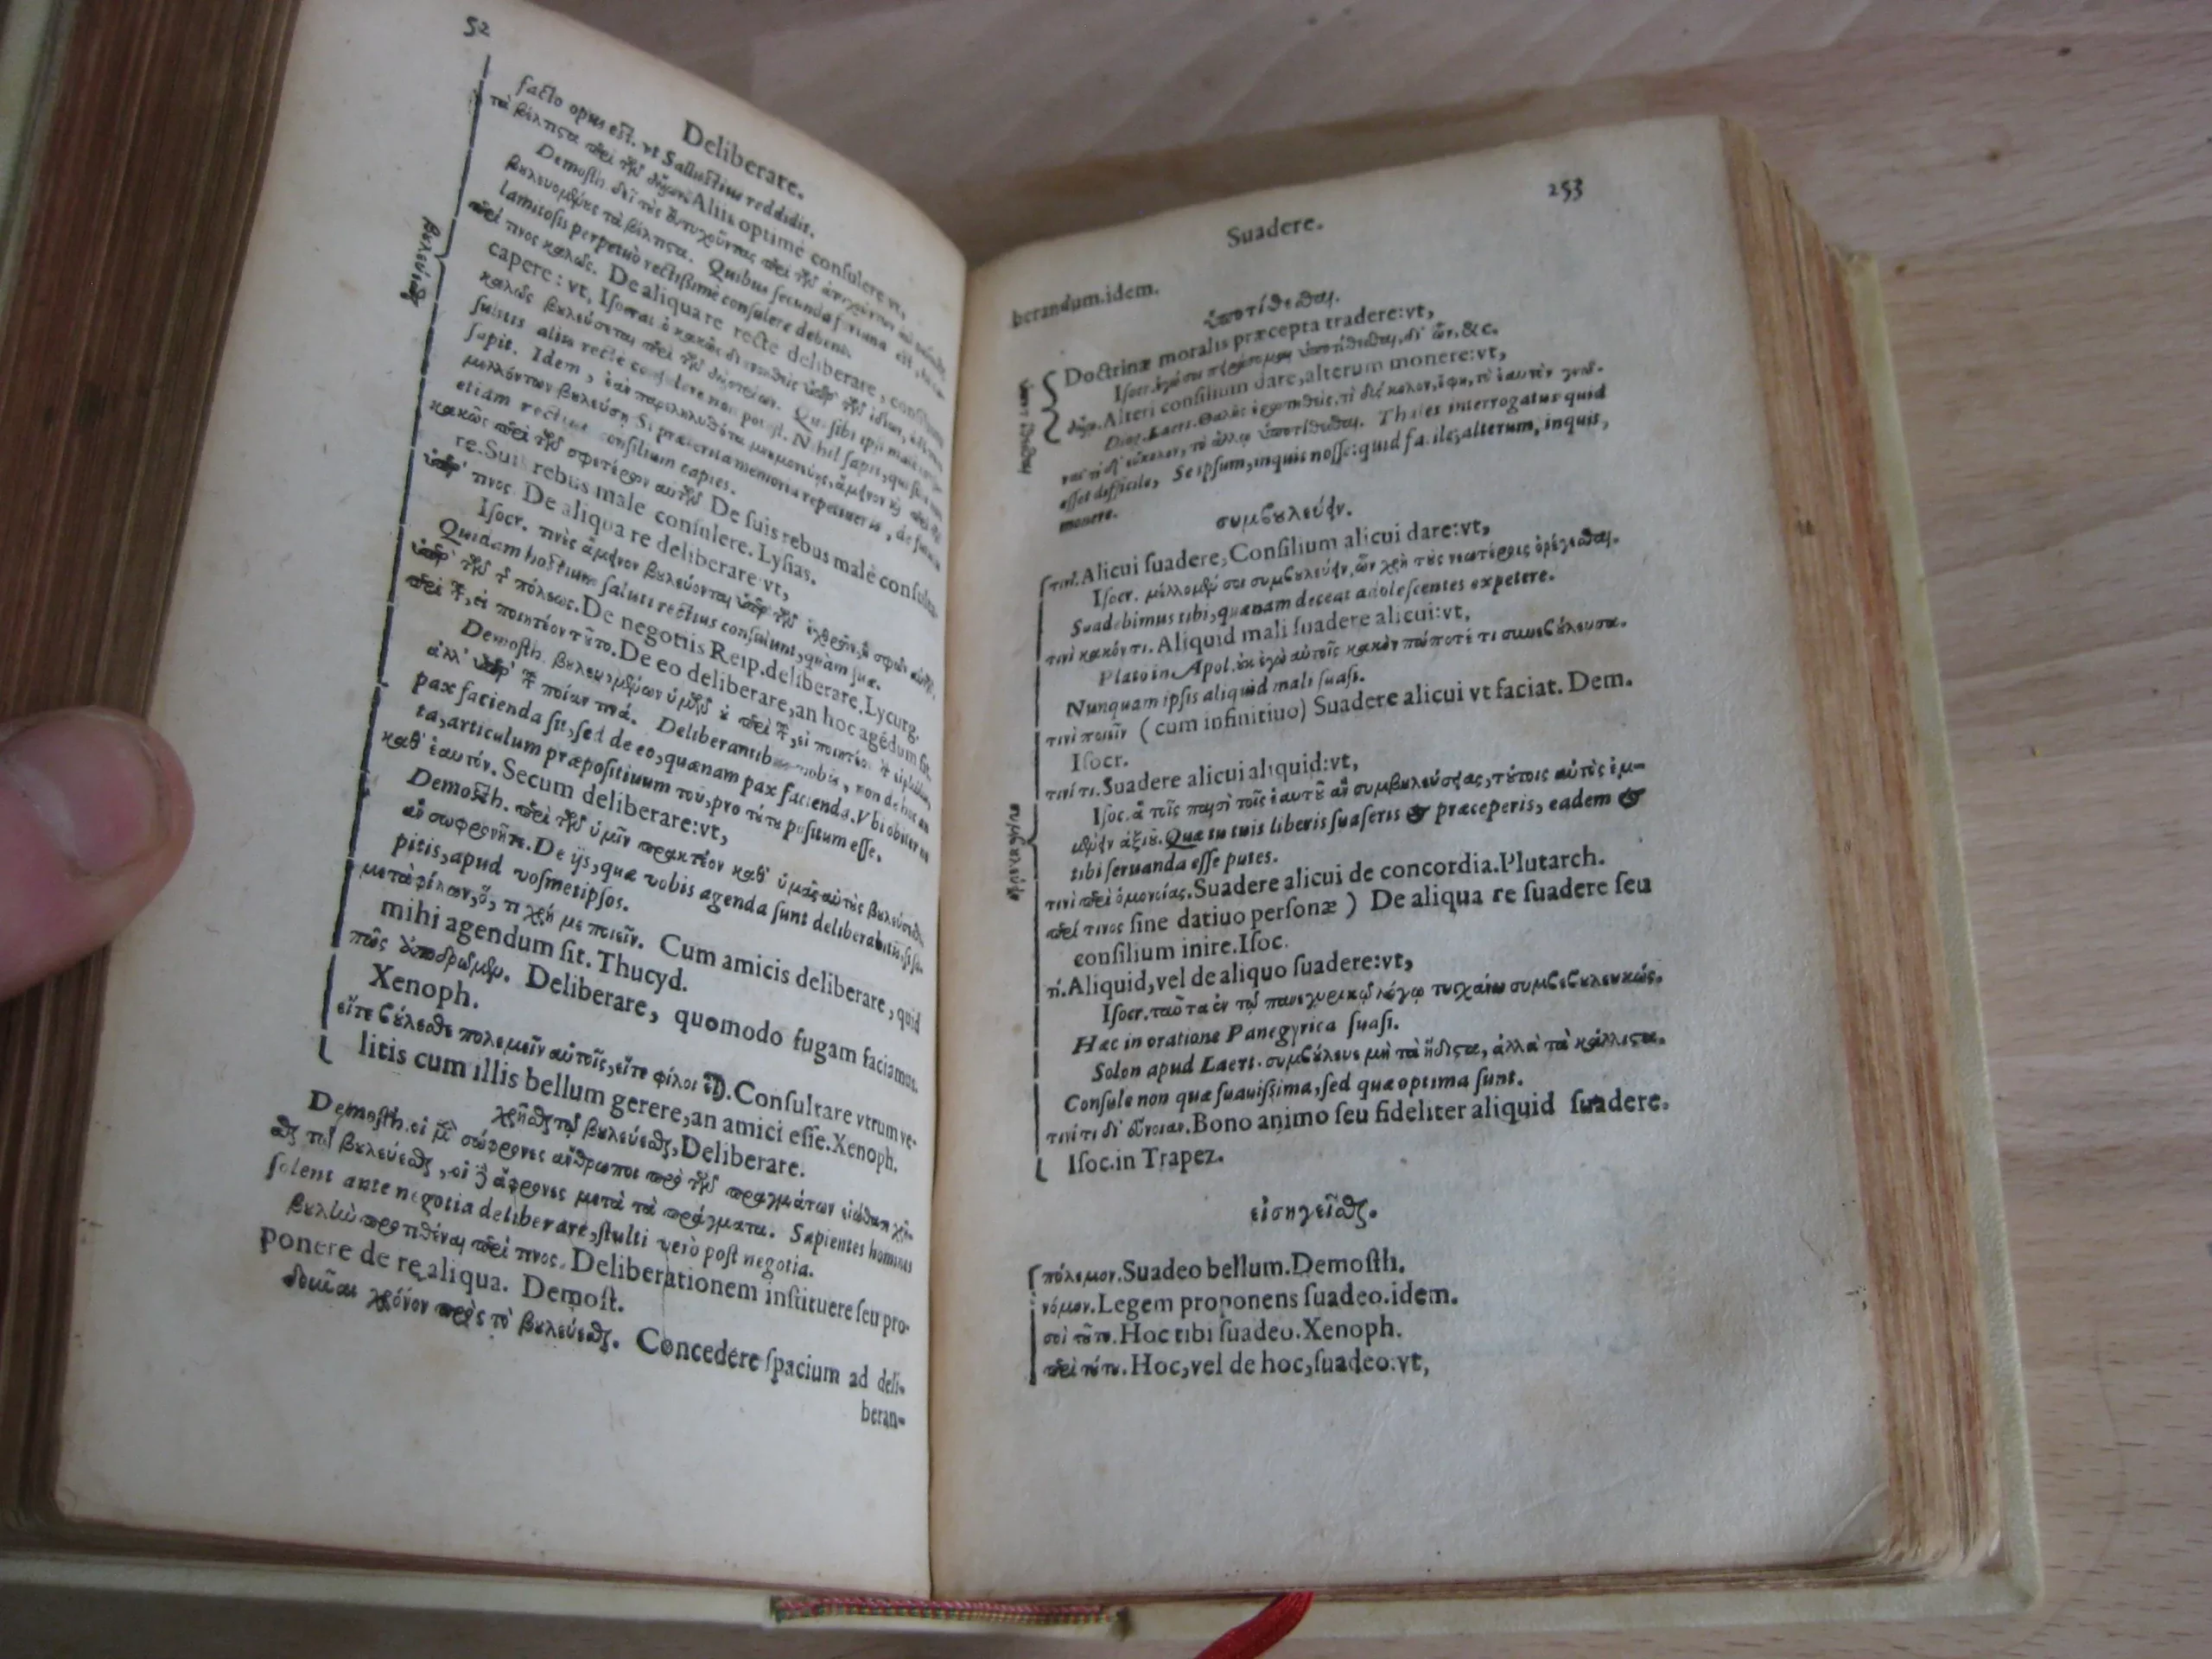 52
Deliberare.
facto opus est. vt Sallustius reddidit.
τὰ βέλτιστα περὶ τῶν Aliis optimè consulere vt,
Demosth. δεῖ τοὺς εὐτυχοῦντας περὶ τῶν ἀτυχούντων
βουλευομένους τὰ βέλτιστα. Quibus secunda fortuna est,
rectissimè consulere debent.
περί τινος καλῶς. De aliqua re recte deliberare, consilium
capere: vt, Isocrat. ὁ κακῶς διανοηθεὶς ὑπὲρ τῶν ἰδίων,
καλῶς βουλεύσεται περὶ τῶν Qui sibi ipsi male
suis aliis recte consulere non potest. Nihil sapit, qui sibi non
sapit. Idem, ἐὰν παρεληλυθότα μνημονεύῃς, ἄμεινον περὶ τῶν
μελλόντων βουλεύσῃ Si præterita memoria repetiueris, de futuris
etiam rectius consilium capies.
κακῶς περὶ τῶν σφετέρων αὐτῶν De suis rebus malè consulere
re. Suis rebus male consulere. Lysias.
ὑπέρ τινος. De aliqua re deliberare vt,
Isocr. τινὲς ἄμεινον βουλεύονται ὑπὲρ τῶν ἐχθρῶν, ἢ σφῶν αὐτῶν,
Quidam hostium saluti rectius consulunt, quàm suæ.
ὑπὲρ τῶν τ πόλεως. De negotiis Reip. deliberare. Lycurg.
περὶ τ͂, εἰ ποιητέον τοῦτο. De eo deliberare, an hoc agēdum sit.
Demosth. βουλευομένων ὑμῶν οὐ περὶ τ͂, εἰ ποιητέον τ εἰρήνην,
ἀλλ' ὑπὲρ τ͂ ποίαν τινά. Deliberantibus nobis, non de hoc an
pax facienda sit, sed de eo, quænam pax facienda. Vbi obiter no
ta, articulum præpositiuum τοῦ, pro τούτου positum esse.
καθ' ἑαυτόν. Secum deliberare: vt,
Demosth. περὶ τῶν ὑμῖν πρακτέον καθ' ὑμᾶς αὐτοὺς βουλεύσεσθε,
ἂν σωφρονῆτε. De ijs, quæ vobis agenda sunt deliberabitis, si sa-
pitis, apud vosmetipsos.
μετὰ φίλων, ὅ, τι χρή με ποιεῖν. Cum amicis deliberare, quid
mihi agendum sit. Thucyd.
πῶς ἀποδρῶμεν. Deliberare, quomodo fugam faciamus.
Xenoph.
εἴτε βούλεσθε πολεμεῖν αὐτοῖς, εἴτε φίλοι εἶναι. Consultare vtrum ve-
litis cum illis bellum gerere, an amici esse. Xenoph.
χρῆσθαι τῷ βουλεύεσθαι, Deliberare.
Demosth. οἱ μὲν σώφρονες ἄνθρωποι πρὸ τῶν πραγμάτων εἰώθασι χρῆ-
σθαι τῷ βουλεύεσθαι, οἱ δὲ ἄφρονες μετὰ τὰ πράγματα. Sapientes homines
solent ante negotia deliberare, stulti verò post negotia.
βουλὴν προτιθέναι περί τινος. Deliberationem instituere seu pro-
ponere de re aliqua. Demost.
δοῦναι χρόνον πρὸς τὸ βουλεύεσθαι. Concedere spacium ad deli-
beran-
βουλεύεσθαι
Suadere.
253
berandum. idem.
ὑποτίθεσθαι.
Doctrinæ moralis præcepta tradere: vt,
Isocr. ἐγώ σοι πειράσομαι ὑποτίθεσθαι, δι' ὧν, &c.
ἄλλῳ. Alteri consilium dare, alterum monere: vt,
Diog. Laert. Θαλῆς ἐρωτηθεὶς, τί δύσκολον, ἔφη, τὸ ἑαυτὸν γνῶ-
ναι· τί δ' εὔκολον, τὸ ἄλλῳ ὑποτίθεσθαι. Thales interrogatus quid
esset difficile, Se ipsum, inquit nosse: quid facile, alterum, inquit,
monere.
ὑποτίθεσθαι
συμβουλεύειν.
τινί. Alicui suadere, Consilium alicui dare: vt,
Isocr. μέλλομέν σοι συμβουλεύειν, ὧν χρὴ τοὺς νεωτέρους ὀρέγεσθαι.
Suadebimus tibi, quænam deceat adolescentes expetere.
τινὶ κακόν τι. Aliquid mali suadere alicui: vt,
Plato in Apol. οὐκ ἐγὼ αὐτοῖς κακὸν πώποτέ τι συνεβούλευσα.
Nunquam ipsis aliquid mali suasi.
τινὶ ποιεῖν (cum infinitiuo) Suadere alicui vt faciat. Dem.
Isocr.
τινί τι. Suadere alicui aliquid: vt,
Isoc. ἃ τοῖς παισὶ τοῖς ἑαυτοῦ ἂν συμβουλεύσειας, τούτοις αὐτὸς ἐμ-
μένειν ἀξίου. Quæ tu tuis liberis suaseris & præceperis, eadem &
tibi seruanda esse putes.
τινὶ περὶ ὁμονοίας. Suadere alicui de concordia. Plutarch.
περί τινος sine datiuo personæ) De aliqua re suadere seu
consilium inire. Isoc.
τί. Aliquid, vel de aliquo suadere: vt,
Isocr. ταῦτα ἐν τῷ πανηγυρικῷ λόγῳ τυγχάνω συμβεβουλευκώς.
Hæc in oratione Panegyrica suasi.
Solon apud Laert. συμβούλευε μὴ τὰ ἥδιστα, ἀλλὰ τὰ κάλλιστα.
Consule non quæ suauissima, sed quæ optima sunt.
τινί τι δι' εὔνοιαν. Bono animo seu fideliter aliquid suadere.
Isoc. in Trapez.
εἰσηγεῖσθαι.
πόλεμον. Suadeo bellum. Demosth.
νόμον. Legem proponens suadeo. idem.
σοὶ τοῦτο. Hoc tibi suadeo. Xenoph.
περὶ τούτου. Hoc, vel de hoc, suadeo: vt,